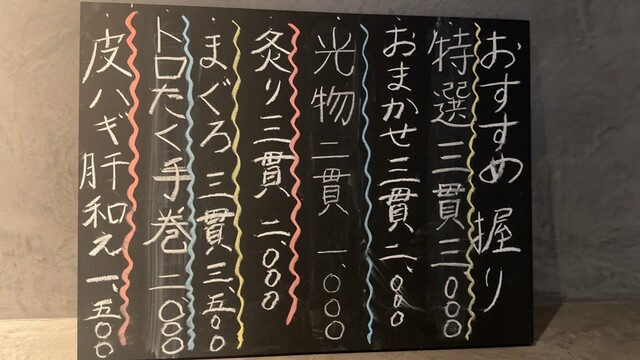 おすすめ 握り
特選 三貫 三000
おまかせ三貫 二、000
光物 二貫 一、000
炙り三貫 二、000
まぐろ 三貫 三、五00
トロたく手巻 二、000
皮ハギ肝和え 一、五00